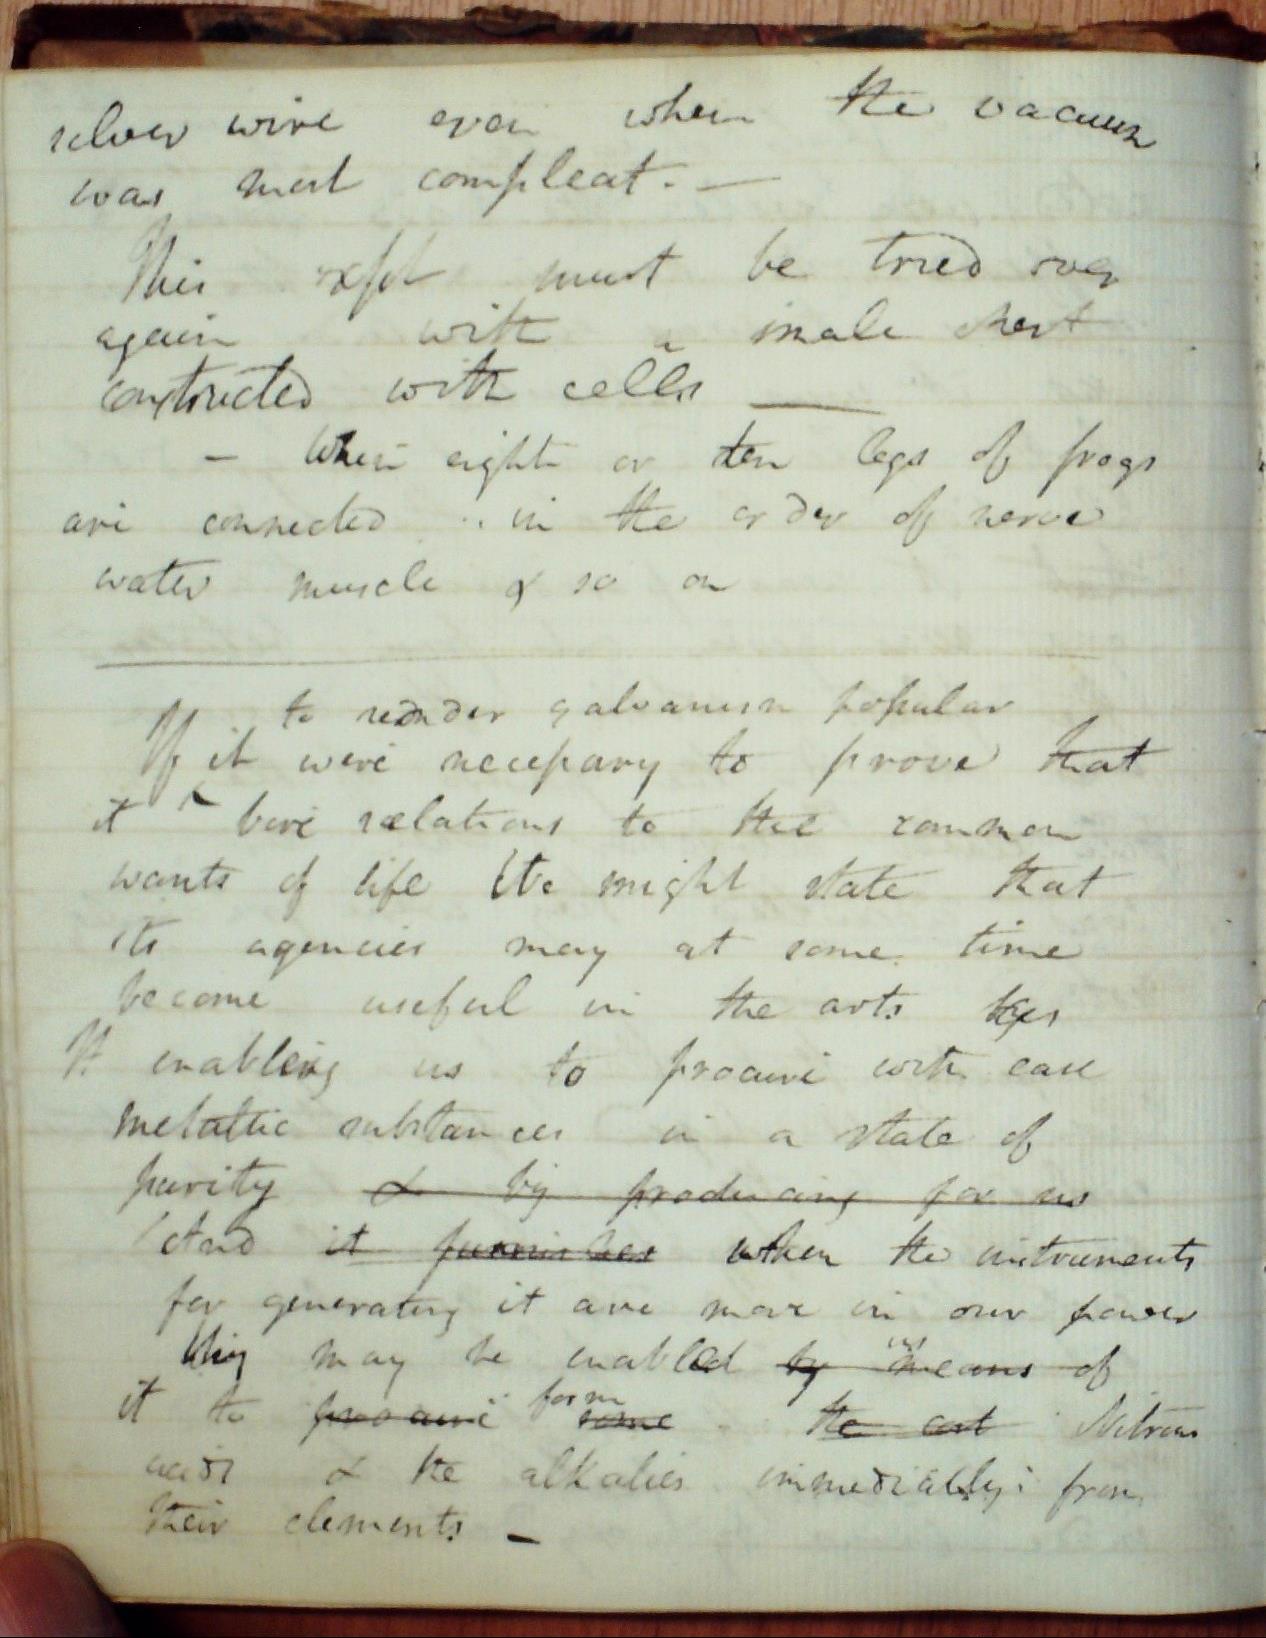 silver wire even when the vacuum
was most compleat. —
This expt must be tried over
again with a male chest
constructed with cells —
— When eight or ten legs of frogs
are connected in the order of nerve
water muscle & so on
to render galvanism popular
If it were necessary to prove that
it ^ bore relations to the common
wants of life We might state that
its agencies may at some time
become useful in the arts by
It enabling us to procure with ease
metallic substances in a state of
purity & by producing for us
And it furnishes when the instruments
for generating it are more in our power
may be enabled by means of
it to procure form some the art Nitrous
acid & the alkalies immediatly from
their elements —